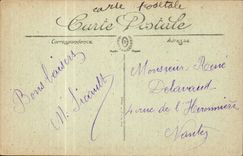 carte postale
Carte Postale
Correspondance
Adresse
Bons baisers
M.
Monsieur René
Delavaud
rue de l'Héronnière
Nantes